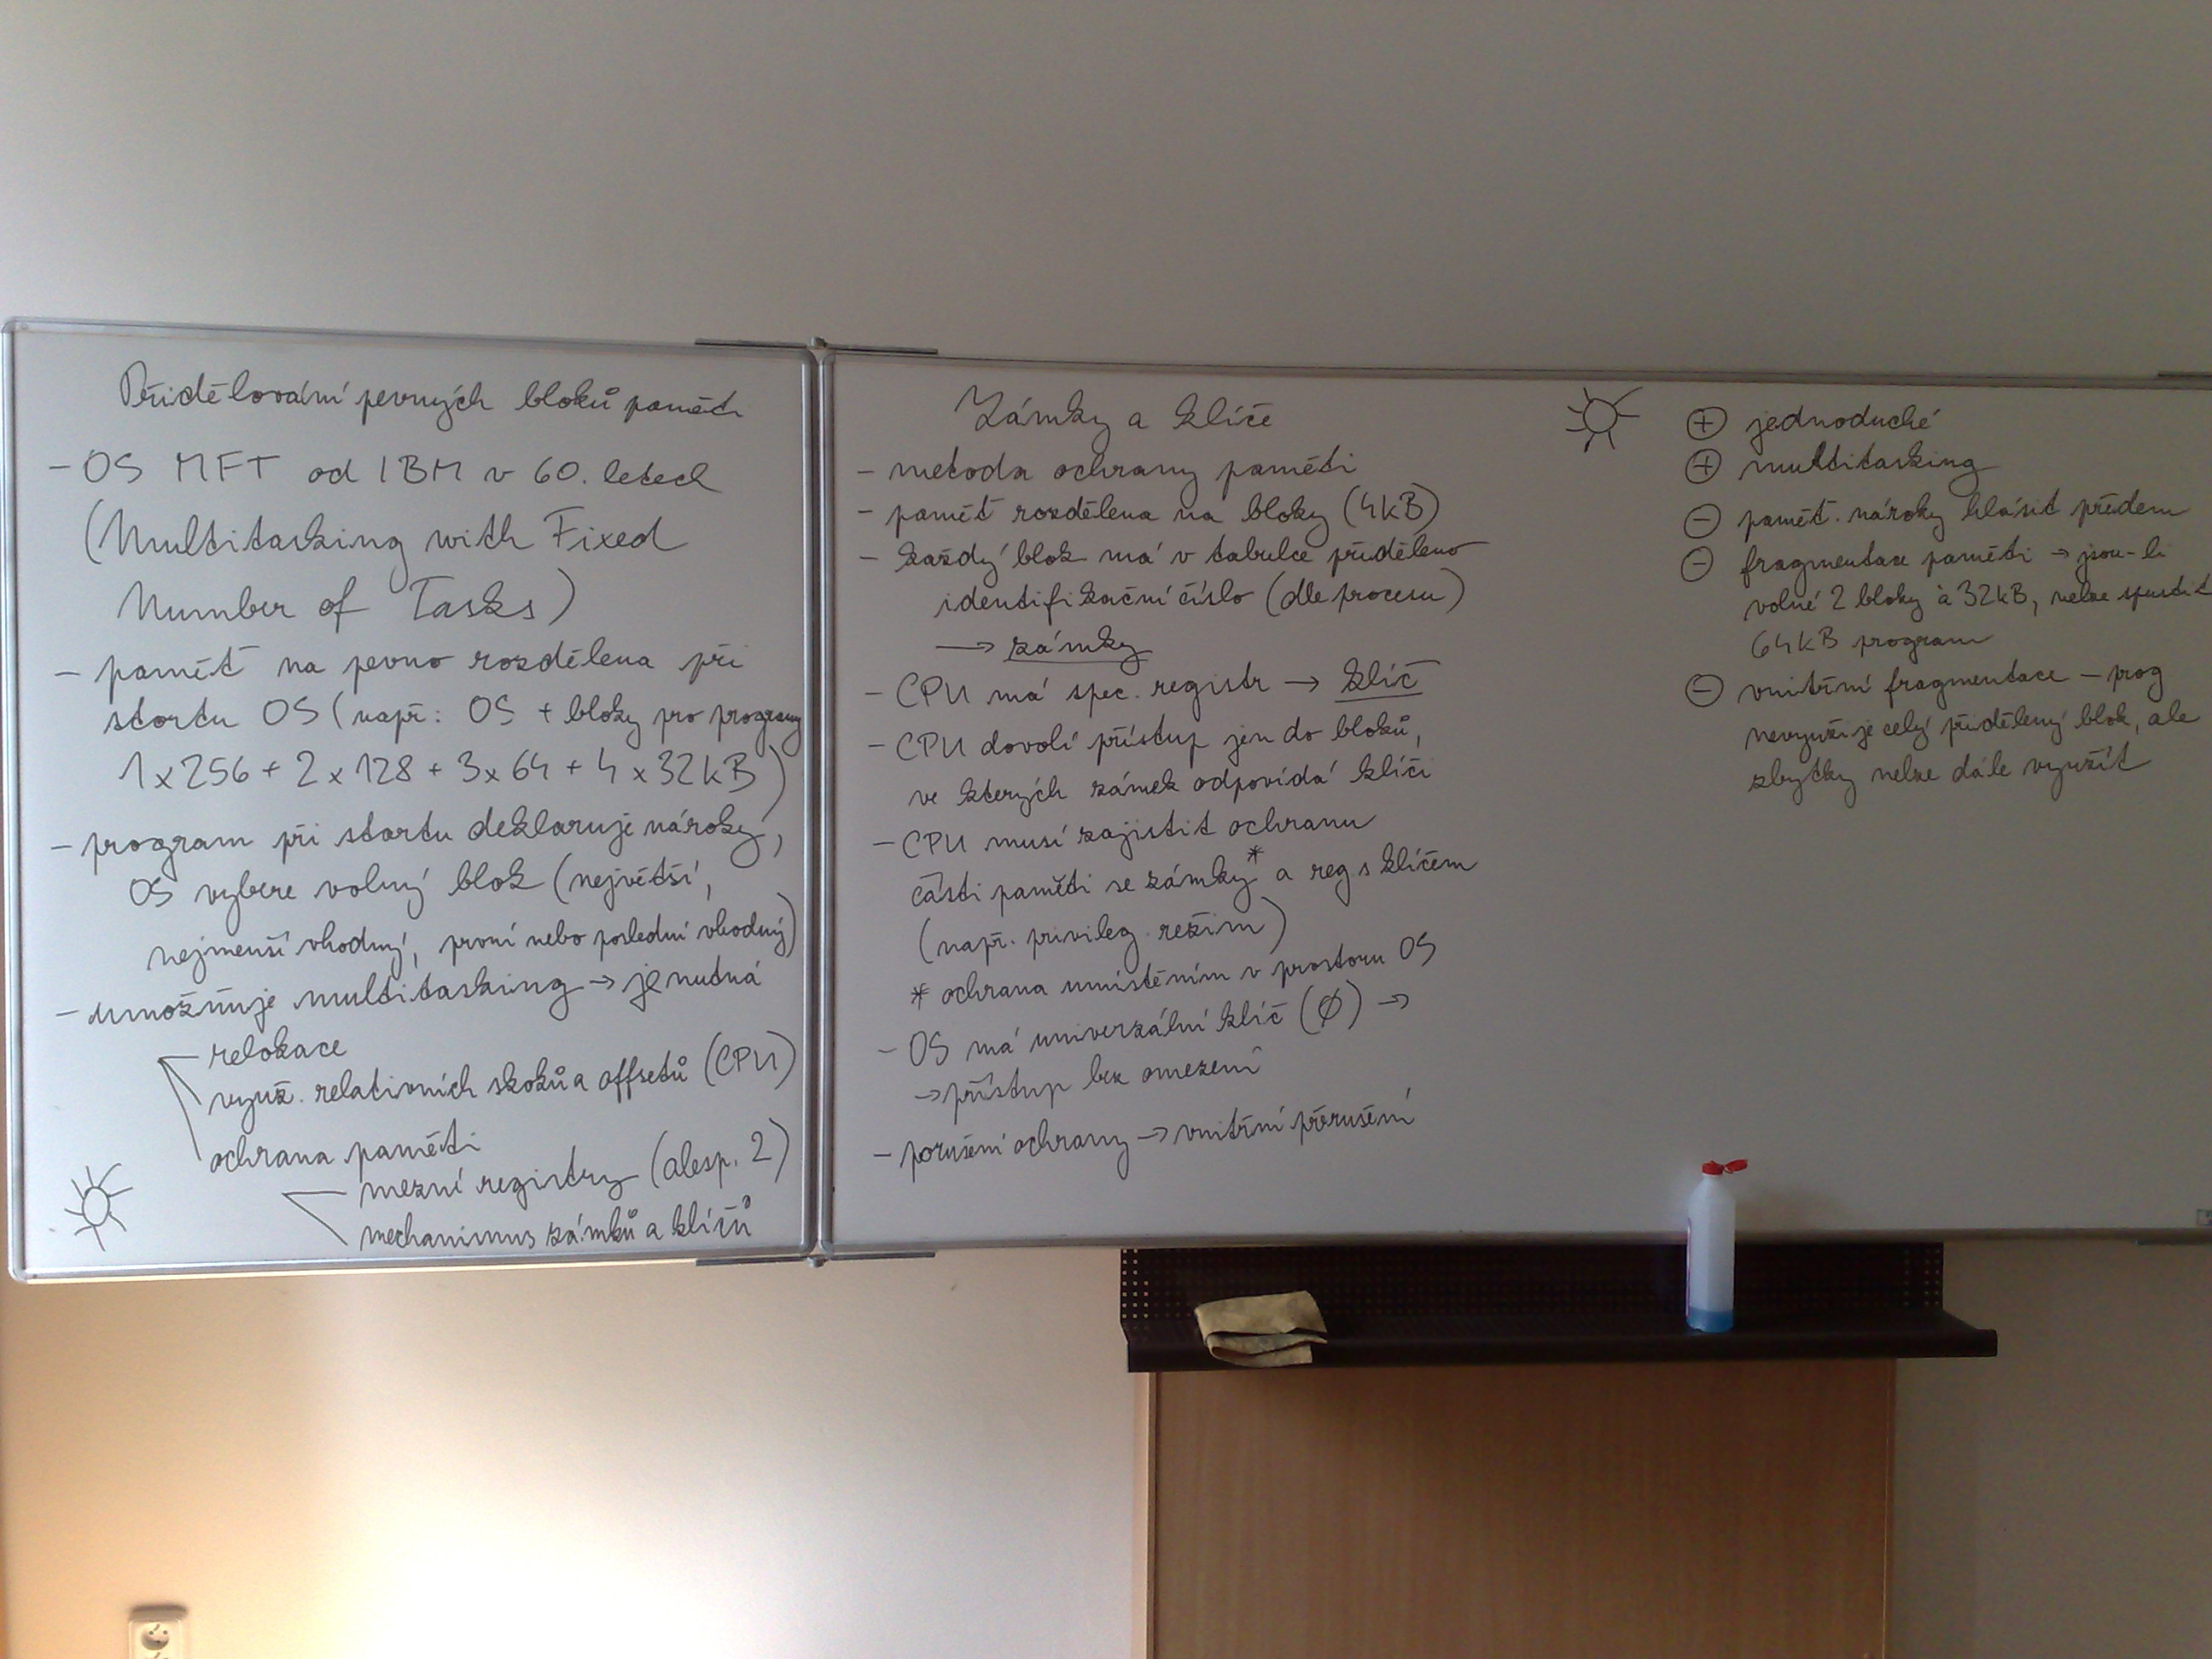 Přidělování pevných bloků paměti
- OS MFT od IBM v 60. letech
(Multitasking with Fixed
Number of Tasks)
- paměť na pevno rozdělena při
startu OS (např: OS + bloky pro programy
1x256 + 2x128 + 3x64 + 4x32kB)
- program při startu deklaruje nároky,
OS vybere volný blok (největší,
nejmenší vhodný, první nebo poslední vhodný)
- umožňuje multitasking → je nutná
relokace
využ. relativních skoků a offsetů (CPU)
ochrana paměti
mezní registry (alesp. 2)
mechanismus zámků a klíčů
Zámky a klíče
- metoda ochrany paměti
- paměť rozdělena na bloky (4kB)
- každý blok má v tabulce přiděleno
identifikační číslo (dle procesu)
→ zámky
- CPU má spec. registr → klíč
- CPU dovolí přístup jen do bloků,
ve kterých zámek odpovídá klíči
- CPU musí zajistit ochranu
části paměti se zámky* a reg s klíčem
(např. privileg. režim)
* ochrana umístěním v prostoru OS
- OS má univerzální klíč (Ø) →
→ přístup bez omezení
- porušení ochrany → vnitřní přerušení
⊕ jednoduché
⊕ multitasking
⊖ paměť. nároky hlásit předem
⊖ fragmentace paměti → jsou-li
volné 2 bloky à 32kB, nelze spustit
64kB program
⊖ vnitřní fragmentace - prog
nevyužije celý přidělený blok, ale
zbytky nelze dále využít